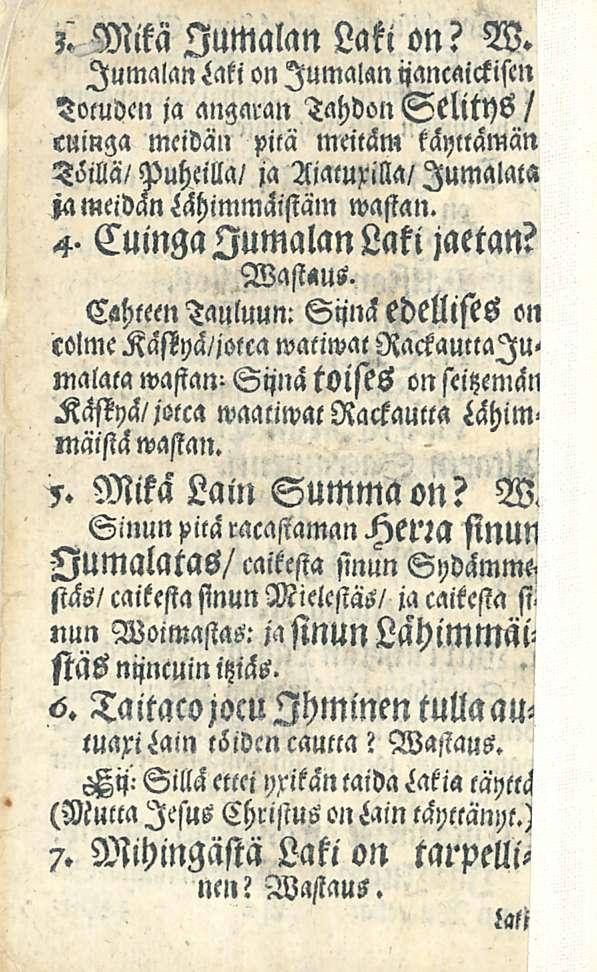 3. Mikä Jumalan Laki on? W.
Jumalan Laki on Jumalan ijancaickisen
Totuden ja angaran Tahdon Selitys /
cuinga meidän pitä meitäm käyttämän
Töillä/ Puheilla/ ja Ajatuxilla/ Jumalata
ja meidän Lähimmäistäm wastan.
4. Cuinga Jumalan Laki jaetan?
Wastaus.
Cahteen Tauluun: Sijnä edellises on
colme Käskyä/jotca watiwat Rackautta Ju-
malata wastan: Sijnä toises on seitzemän
Käskyä/ jotca waatiwat Rackautta Lähim-
mäistä wastan.
5. Mikä Lain Summa on? W.
Sinun pitä racastaman Herra sinun
Jumalatas/ caikesta sinun Sydämme-
stäs/ caikesta sinun Mielestäs/ ja caikesta si-
nun Woimastas: ja sinun Lähimmäi-
stäs nijncuin itziäs.
6. Taitaco jocu Ihminen tulla au-
tuaxi Lain töiden cautta? Wastaus.
Eij: Sillä ettei yxikän taida Lakia täyttä
(Mutta Jesus Christus on Lain täyttänyt.)
7. Mihingästä Laki on tarpelli-
nen? Wastaus.
Laki